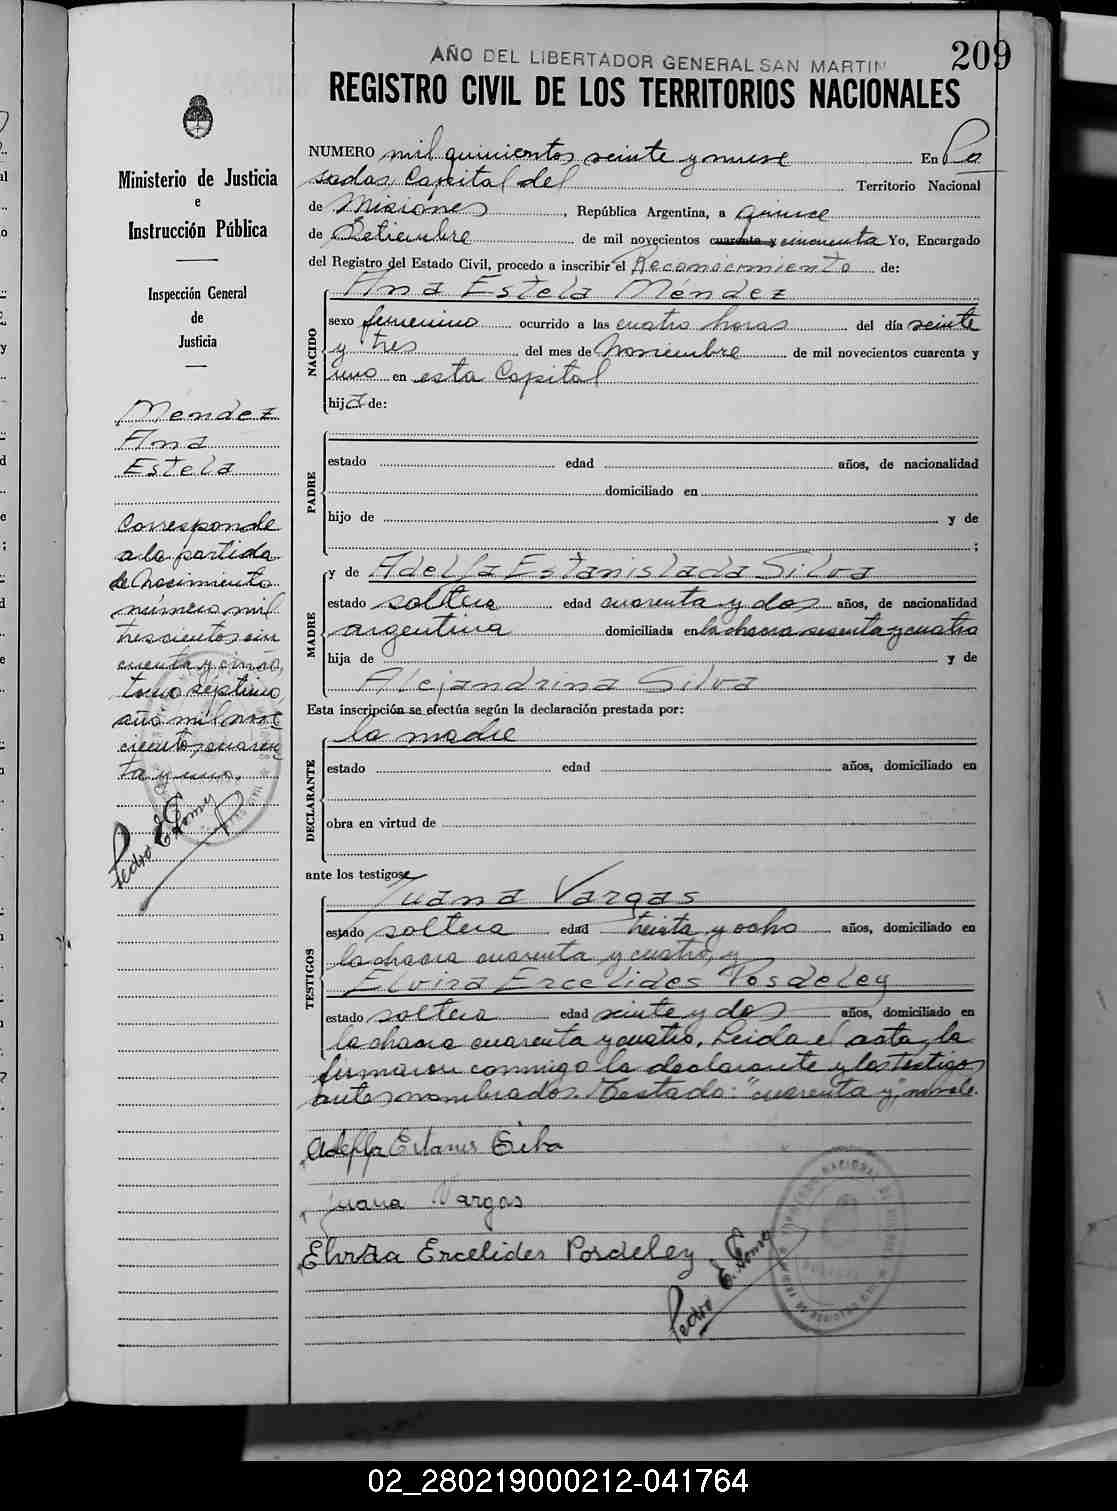 AÑO DEL LIBERTADOR GENERAL SAN MARTIN
209
REGISTRO CIVIL DE LOS TERRITORIOS NACIONALES
Ministerio de Justicia
e
Instrucción Pública
Inspección General
de
Justicia
Méndez
Ana
Estela
Corresponde
a la partida
de Nacimiento
número mil
trescientos cin
cuenta y cinco,
tomo séptimo
año mil nove
cientos cuaren
ta y uno.
Pedro E. Gomez
NUMERO mil quinientos veinte y nueve En Po
sadas, Capital del Territorio Nacional
de Misiones, República Argentina, a quince
de Setiembre de mil novecientos cuarenta y cincuenta Yo, Encargado
del Registro del Estado Civil, procedo a inscribir el Reconocimiento de:
Ana Estela Méndez
NACIDO
sexo femenino ocurrido a las cuatro horas del día veinte
y tres del mes de Noviembre de mil novecientos cuarenta y
uno en esta Capital
hija de:
PADRE
estado edad años, de nacionalidad
domiciliado en
hijo de y de
;
MADRE
y de Adelfa Estanislada Silva
estado soltera edad cuarenta y dos años, de nacionalidad
argentina domiciliada en la chacra sesenta y cuatro
hija de y de
Alejandrina Silva
Esta inscripción se efectúa según la declaración prestada por:
la madre
DECLARANTE
estado edad años, domiciliado en
obra en virtud de
ante los testigos:
Juana Vargas
TESTIGOS
estado soltera edad treinta y ocho años, domiciliado en
la chacra cuarenta y cuatro, y
Elvira Ercelides Posdeley
estado soltera edad veinte y dos años, domiciliado en
la chacra cuarenta y cuatro. Leida el acta, la
firmaron conmigo la declarante y los testigos
antes nombrados. Testado: "cuarenta y", no vale.
Adelfa Estanis Silva
Juana Vargas
Elvira Ercelides Posdeley
Pedro E. Gomez
02_280219000212-041764